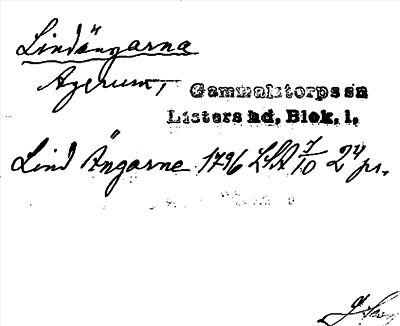 Lindängarna
Agerum,
Gammalstorps sn
Listers hd, Blek. l.
Lind Ängarne 1796 LSA 7/10 24 pr.